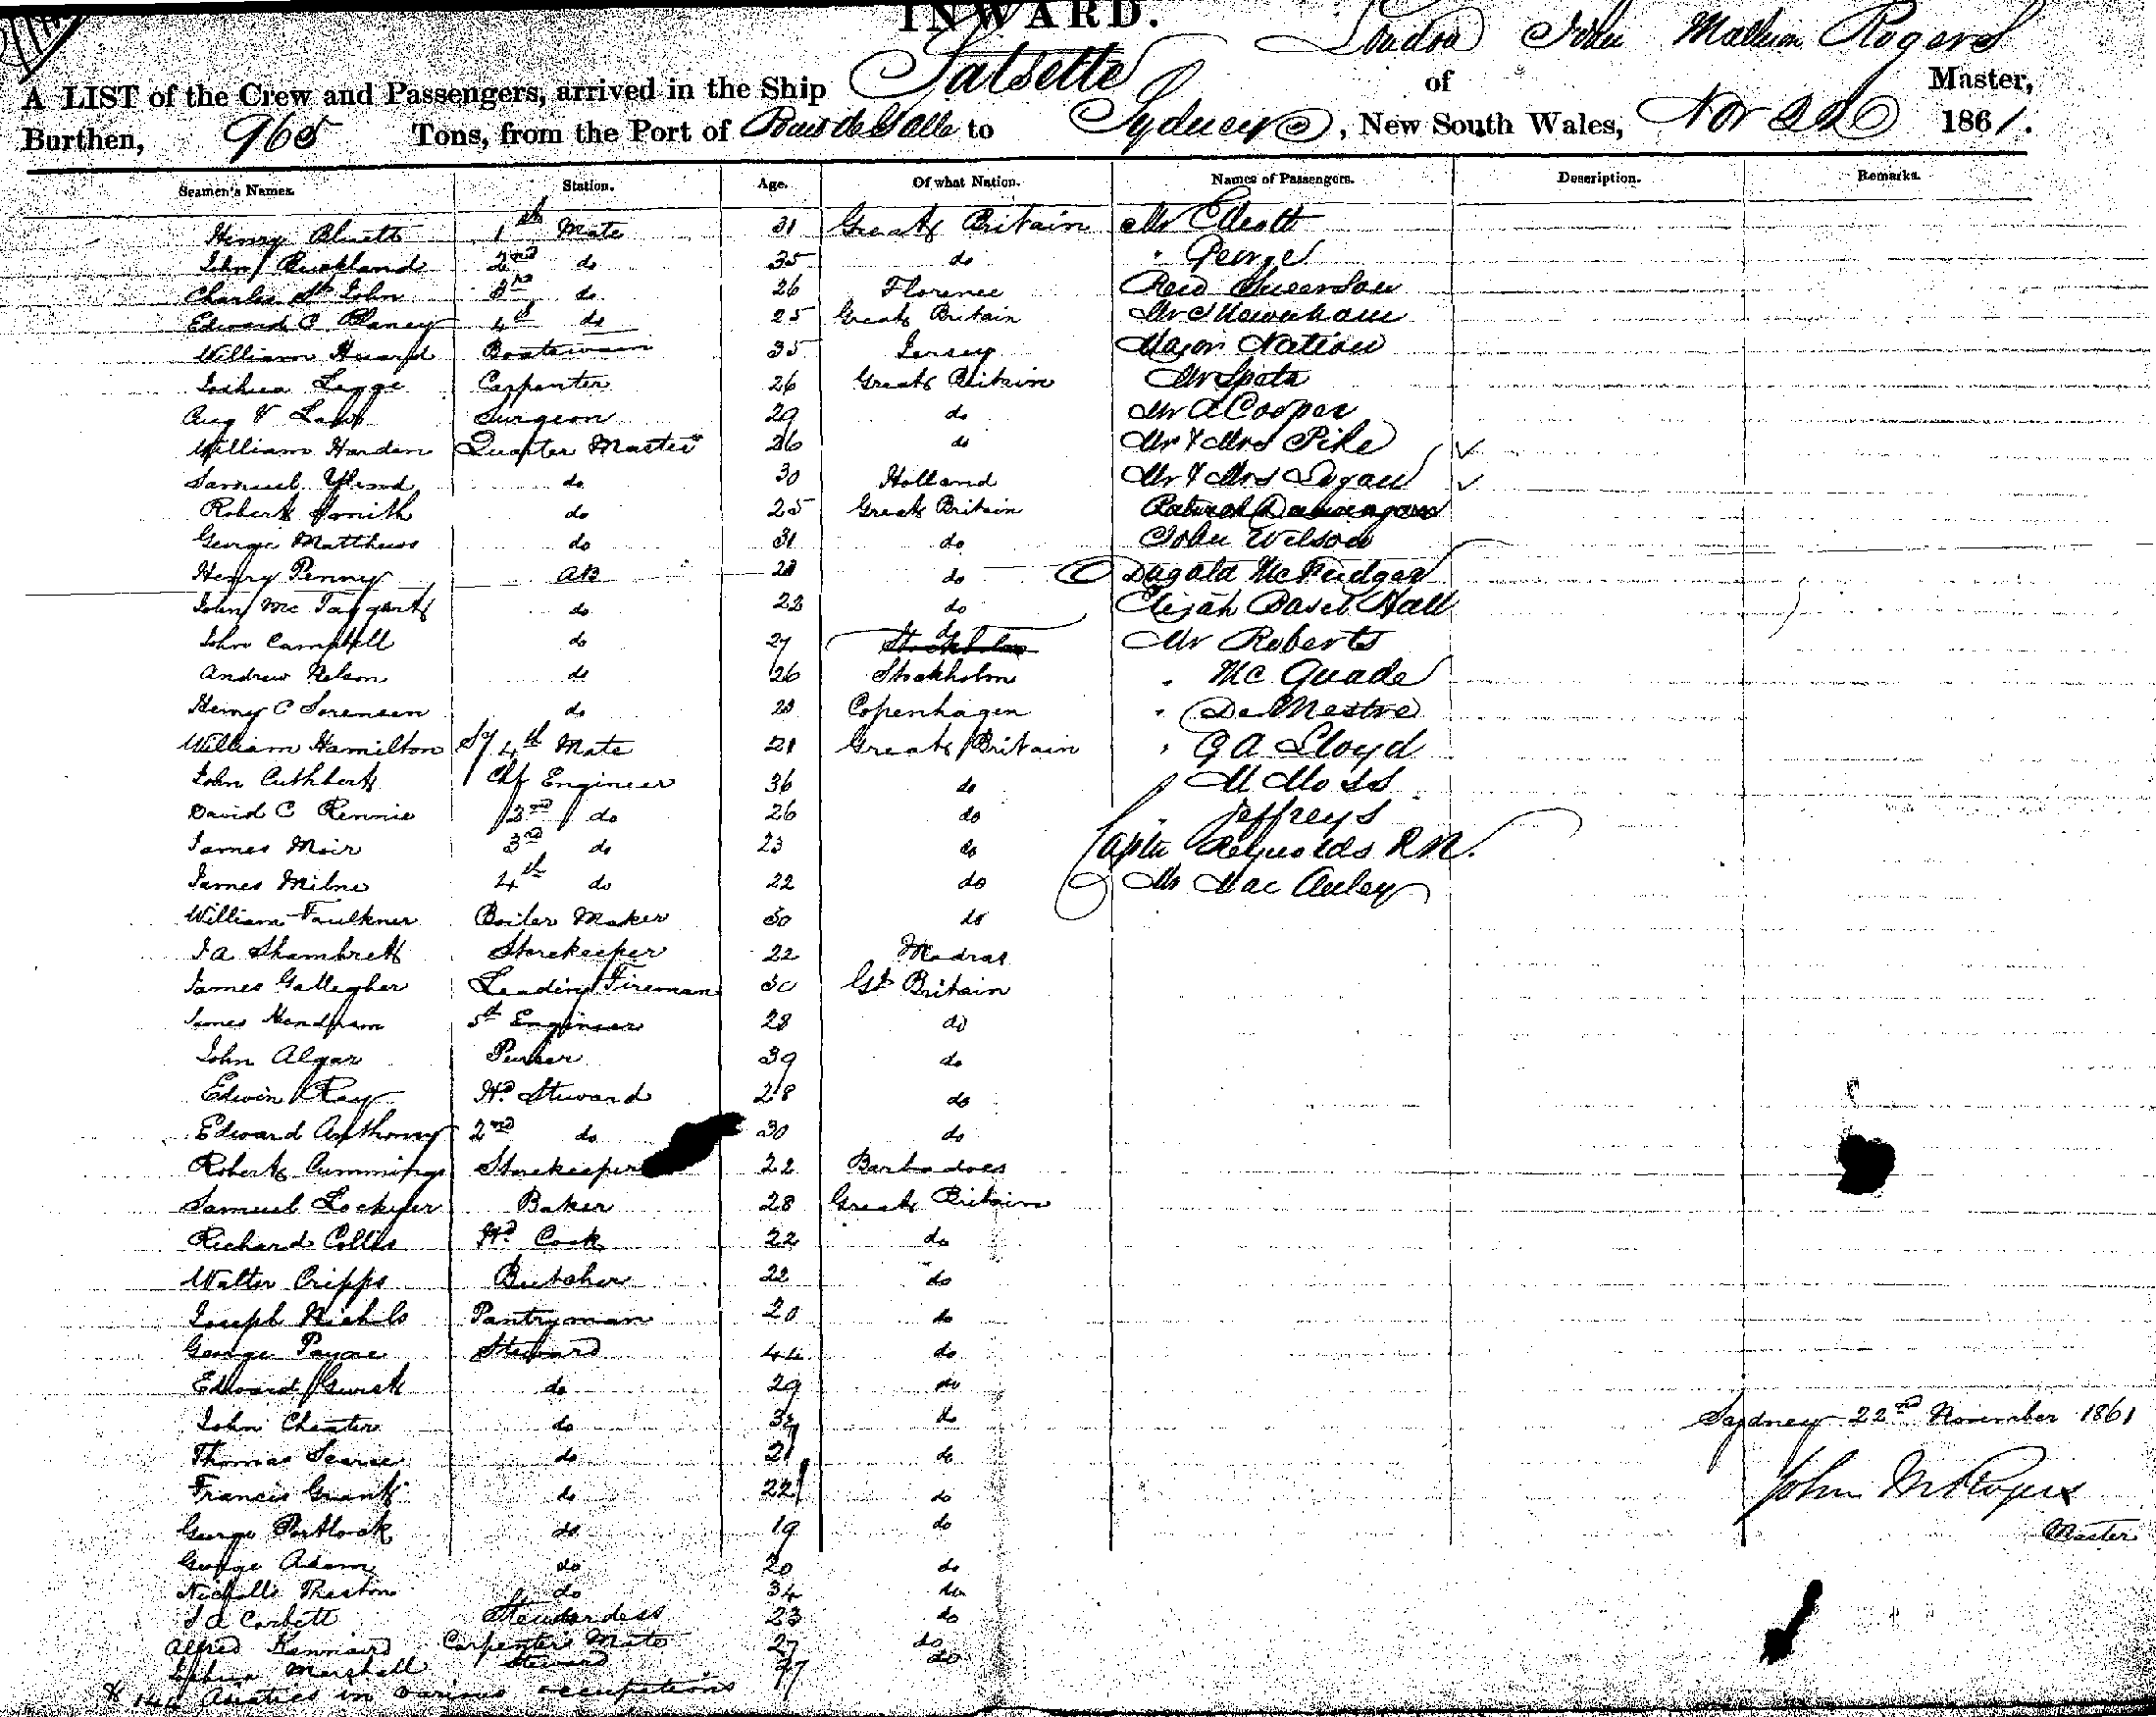 INWARD.
A LIST of the Crew and Passengers, arrived in the Ship Salsette of London John Rogers Master,
Burthen, 965 Tons, from the Port of Galle to Sydney, New South Wales, Nov 22 1861.
Seamen's Names. Station. Age. Of what Nation. Names of Passengers. Description. Remarks.
Henry 1st Mate 31 Great Britain Mr
John Buckland 2nd do 35 do " George
Charles St John 3rd do 26 Florence
Edward C Blaney 4th do 25 Great Britain Mr
William Huard Boatswain 35 Jersey Major Nation
Joshua Legge Carpenter 26 Great Britain Mr
Aug Surgeon 29 do Mr A Cooper
William Harden Quarter Master 26 do Mr & Mrs Pike
Samuel do 30 Holland Mr & Mrs Logan
Robert Smith do 25 Great Britain
George Matthews do 31 do John Wilson
Henry Penny AB do Dugald
John McTaggart do 22 do Elijah Basil Hall
John Campbell do 27 do Mr Roberts
Andrew Nelson do 26 Stockholm " Mc Quade
Henry C Sorensen do Copenhagen " De Mestre
William Hamilton 4th Mate 21 Great Britain " G A Lloyd
John Cuthbert Chf Engineer 36 do M Moss
David C Rennie 2nd do 26 do " Jeffreys
James Moir 3rd do 23 do Captn Reynolds R.N.
James Milne 4th do 22 do Mr Mac Auley
William Faulkner Boiler Maker 30 do
J A Storekeeper 22 Madras
James Gallagher Leading Fireman 30 Gt Britain
James Henderson 5th Engineer 28 do
John Algar Purser 39 do
Edwin Ray Hd Steward 28 do
Edward Anthony 2nd do 30 do
Robert Cummings Storekeeper 22 Barbadoes
Samuel Lockyer Baker 28 Great Britain
Richard Hd Cook 22 do
Walter Cripps Butcher 22 do
Joseph Nichols Pantryman 20 do
George Payne Steward 44 do
Edward do 29 do
John do do Sydney 22nd November 1861
Thomas do 21 do
Francis Grant do 22 do John M Rogers
George Portlock do 19 do Master
George Adam do 20 do
do 34 do
J A Corbett Stewardess 23 do
Alfred Kinnaird Carpenter's Mate 27 do
Joshua Marshall Steward do
& 144 Asiatics in various occupations